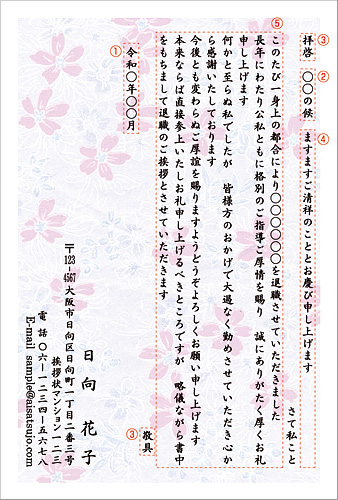 ③
拝啓
②
〇〇の候
④
ますますご清祥のこととお慶び申し上げます
さて私こと
⑤
このたび一身上の都合により〇〇〇〇〇〇を退職させていただきました
長年にわたり公私ともに格別のご指導ご厚情を賜り　誠にありがたく厚くお礼
申し上げます
何かと至らぬ私でしたが　皆様方のおかげで大過なく勤めさせていただき心か
ら感謝いたしております
今後とも変わらぬご厚誼を賜りますようどうぞよろしくお願い申し上げます
本来ならば直接参上いたしお礼申し上げるべきところですが　略儀ながら書中
をもちまして退職のご挨拶とさせていただきます
③
敬具
①
令和〇年〇〇月
日向　花子
〒123-4567大阪市日向区日向町一丁目二番三号
挨拶状マンション一二三
電話〇六ー一二三四ー五六七八
E-mail sample@aisatsujo.com